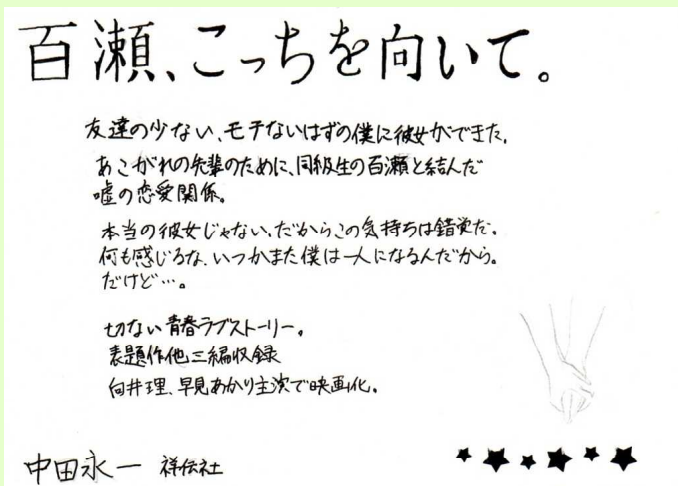 百瀬、こっちを向いて。
友達の少ない、モテないはずの僕に彼女ができた。
あこがれの先輩のために、同級生の百瀬と結んだ
嘘の恋愛関係。
本当の彼女じゃない、だからこの気持ちは錯覚だ。
何も感じるな、いつかまた僕は一人になるんだから。
だけど…。
切ない青春ラブストーリー。
表題作他三編収録
向井理、早見あかり主演で映画化。
中田永一 祥伝社